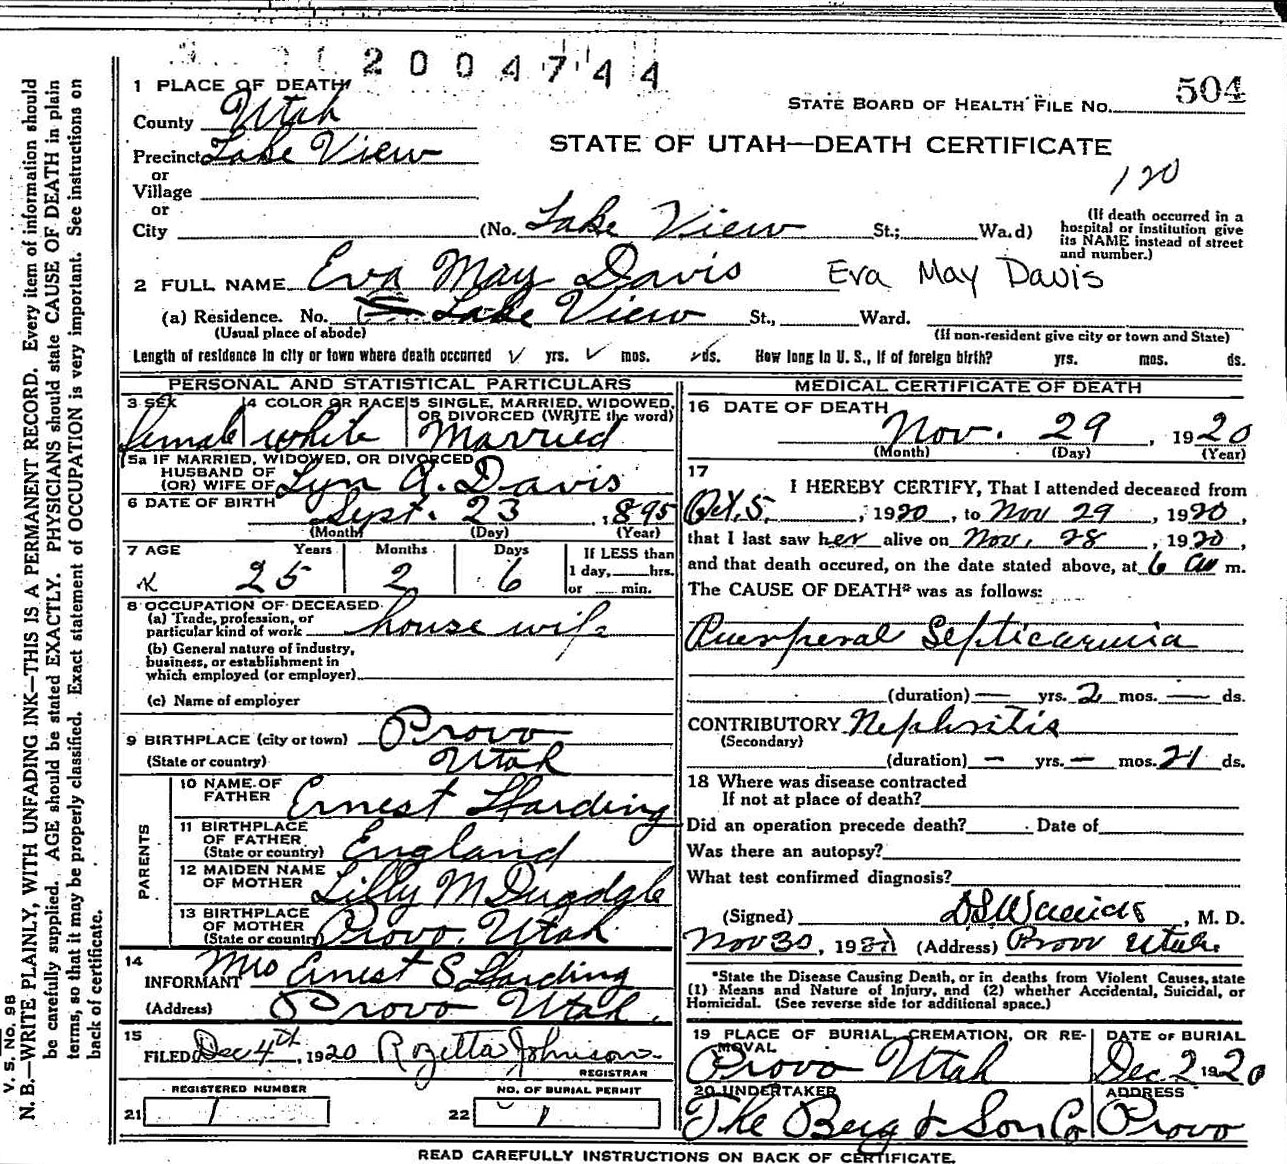 2004744
1 PLACE OF DEATH
STATE BOARD OF HEALTH FILE No. 504
County Utah
STATE OF UTAH—DEATH CERTIFICATE
Precinct Lake View
120
or
Village
or
City (No. Lake View St.; Wa.d)
(If death occurred in a hospital or institution give its NAME instead of street and number.)
2 FULL NAME Eva May Davis Eva May Davis
(a) Residence. No. Lake View St., Ward.
(Usual place of abode) (If non-resident give city or town and State)
Length of residence in city or town where death occurred yrs. mos. ds. How long in U. S., if of foreign birth? yrs. mos. ds.
PERSONAL AND STATISTICAL PARTICULARS
3 SEX female
4 COLOR OR RACE white
5 SINGLE, MARRIED, WIDOWED, OR DIVORCED (WRITE the word) Married
5a IF MARRIED, WIDOWED, OR DIVORCED
HUSBAND OF
(OR) WIFE OF Lyn A. Davis
6 DATE OF BIRTH Sept. 23, 1895
(Month) (Day) (Year)
7 AGE Years Months Days If LESS than
25 2 6 1 day, hrs.
or min.
8 OCCUPATION OF DECEASED
(a) Trade, profession, or
particular kind of work house wife
(b) General nature of industry,
business, or establishment in
which employed (or employer)
(c) Name of employer
9 BIRTHPLACE (city or town) Provo
(State or country) Utah
PARENTS
10 NAME OF FATHER Ernest Harding
11 BIRTHPLACE OF FATHER (State or country) England
12 MAIDEN NAME OF MOTHER Lilly M Dugdale
13 BIRTHPLACE OF MOTHER (State or country) Provo, Utah.
14 INFORMANT Mrs Ernest S Harding
(Address) Provo Utah.
15 FILED Dec 4th, 1920 Rozetta Johnson
REGISTRAR
REGISTERED NUMBER NO. OF BURIAL PERMIT
21 1 22 1
MEDICAL CERTIFICATE OF DEATH
16 DATE OF DEATH
Nov. 29, 1920
(Month) (Day) (Year)
17
I HEREBY CERTIFY, That I attended deceased from
Oct. 5, 1920, to Nov 29, 1920,
that I last saw her alive on Nov. 28, 1920,
and that death occured, on the date stated above, at 6 am m.
The CAUSE OF DEATH* was as follows:
Puerperal Septicaemia
(duration) — yrs. 2 mos. — ds.
CONTRIBUTORY Nephritis
(Secondary)
(duration) — yrs. — mos. 21 ds.
18 Where was disease contracted
If not at place of death?
Did an operation precede death? Date of
Was there an autopsy?
What test confirmed diagnosis?
(Signed) , M. D.
Nov 30, 19 (Address) Provo Utah.
*State the Disease Causing Death, or in deaths from Violent Causes, state
(1) Means and Nature of Injury, and (2) whether Accidental, Suicidal, or
Homicidal. (See reverse side for additional space.)
19 PLACE OF BURIAL, CREMATION, OR REMOVAL DATE OF BURIAL
Provo Utah Dec 2 1920
20 UNDERTAKER ADDRESS
The Berg & Son Co Provo
READ CAREFULLY INSTRUCTIONS ON BACK OF CERTIFICATE.
V. S. No. 98
N. B.—WRITE PLAINLY, WITH UNFADING INK—THIS IS A PERMANENT RECORD. Every item of information should
be carefully supplied. AGE should be stated EXACTLY. PHYSICIANS should state CAUSE OF DEATH in plain
terms, so that it may be properly classified. Exact statement of OCCUPATION is very important. See instructions on
back of certificate.